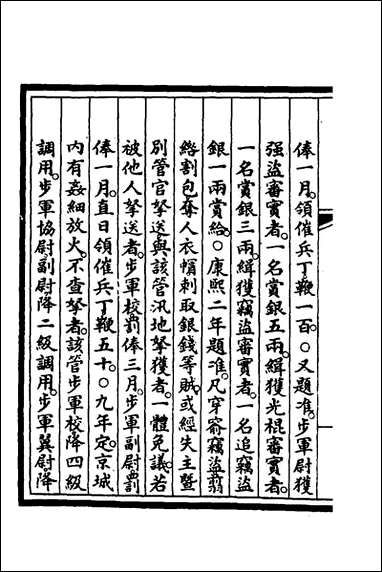 俸一月。領催兵丁鞭一百。○又題准。步軍尉獲
强盜審實者。一名賞銀五兩。緝獲光棍審實者。
一名賞銀三兩。緝獲竊盜審實者。一名追竊盜
銀一兩賞給。○康熙二年題准。凡穿窬竊盜翦
綹割包奪人衣帽刺取銀錢等賊。或經失主暨
別管官拏送與該管汛地拏獲者。一體免議。若
被他人拏送者。步軍校罰俸三月。步軍副尉罰
俸一月。直日領催兵丁鞭五十。○九年定。京城
内有姦細放火。不查拏者。該管步軍校降四級
調用。步軍協尉副尉降二級調用。步軍翼尉降